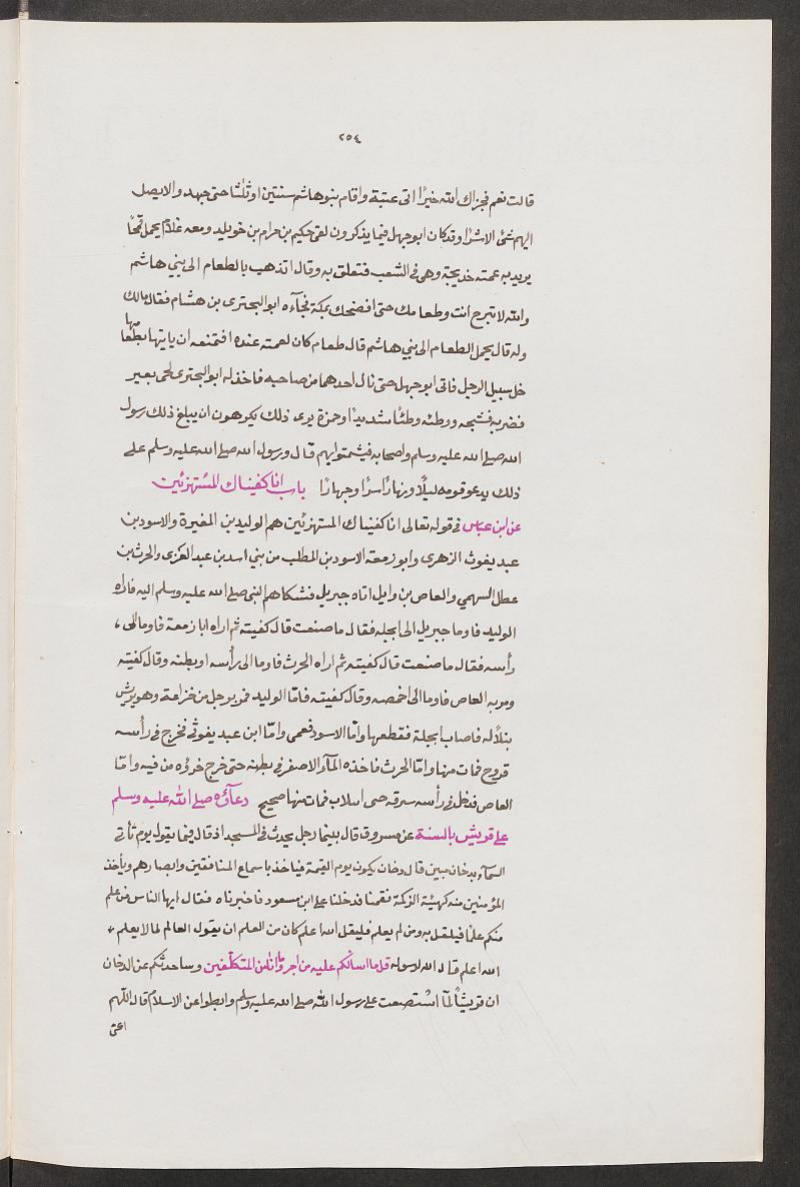 ٢٥٤
قالت نعم فجزاك الله خيرًا اتى عتبة واقام بنو هاشم سنتين او ثلثا حتى جهدوا لا يصل
اليهم شئ الا سرًا وقد كان ابو جهل فيما يذكرون لقى حكيم بن حرام بن خويلد ومعه غلامٌ يحمل قمحًا
يريد به عمته خديجة وهى فى الشعب فتعلق به وقال اتذهب بالطعام الى بني هاشم
والله لا تبرح انت وطعامك حتى افضحك بمكة فجآءه ابو البحترى بن هشام فقال مالك
وله قال يحمل الطعام الى بني هاشم قال طعام كان لعمته عنده افتمنعه ان ياتيها بطعامها
خل سبيل الرجل فابى ابو جهل حتى نال احدهما من صاحبه فاخذ له ابو البحترى لحى بعير
فضربه فشجه ووطئه وطئًا شديدًا وحمزة يرى ذلك يكرهون ان يبلغ ذلك رسول
الله صلى الله عليه وسلم واصحابه فيشمتوا بهم قال ورسول الله صلى الله عليه وسلم على
ذلك يدعو قومه ليلًا ونهارًا سرًا وجهارًا باب انا كفيناك المستهزئين
عن ابن عباس فى قوله تعالى انا كفيناك المستهزئين هم الوليد بن المغيرة والاسود بن
عبد يغوث الزهرى وابو زمعة الاسود بن المطلب من بني اسد بن عبد العزى والحرث بن
عطل السهمي والعاص بن وايل اتاه جبريل فشكاهم النبى صلى الله عليه وسلم اليه فاراه
الوليد فاوما جبريل الى ابجله فقال ما صنعت قال كفيته ثم اراه ابا زمعة فاوما الى
رأسه فقال ما صنعت قال كفيته ثم اراه الحرث فاوما الى رأسه او بطنه وقال كفيته
ومر به العاص فاوما الى اخمصه وقال كفيته فامّا الوليد فمر برجل من خزاعة وهو يريش
نبلًا له فاصاب ابجلة فقطعها وامّا الاسود فعمى وامّا ابن عبد يغوث فخرج فى رأسه
قروح فمات منها وامّا الحرث فاخذه المآء الاصفر فى بطنه حتى خرج خرؤه من فيه وامّا
العاص فدخل فى رأسه سرقه حتى امتلات فمات منها صحيح دعآؤه صلى الله عليه وسلم
على قريش بالسنة عن مسروق قال بينما رجل يحدث فى المسجد اذ قال فيما يقول يوم تأتى
السمآء بدخان مبين قال دخان يكون يوم القيمة فياخذ باسماع المنافقين وابصارهم ويأخذ
المؤمنين منه كهيئة الزكمة فقمنا فدخلنا على ابن مسعود فاخبرناه فقال ايها الناس من علم
منكم علمًا فيلقل به ومن لم يعلم فليقل الله اعلم كان من العلم ان يقول العالم لما لا يعلم
الله اعلم قال الله لرسوله قل ما اسالكم عليه من اجر وما انا من المتكلفين وساحدثكم عن الدخان
ان قريشًا لمّا استصعبت على رسول الله صلى الله عليه وسلم وابطوا عن الاسلام قال اللهم
اعنى